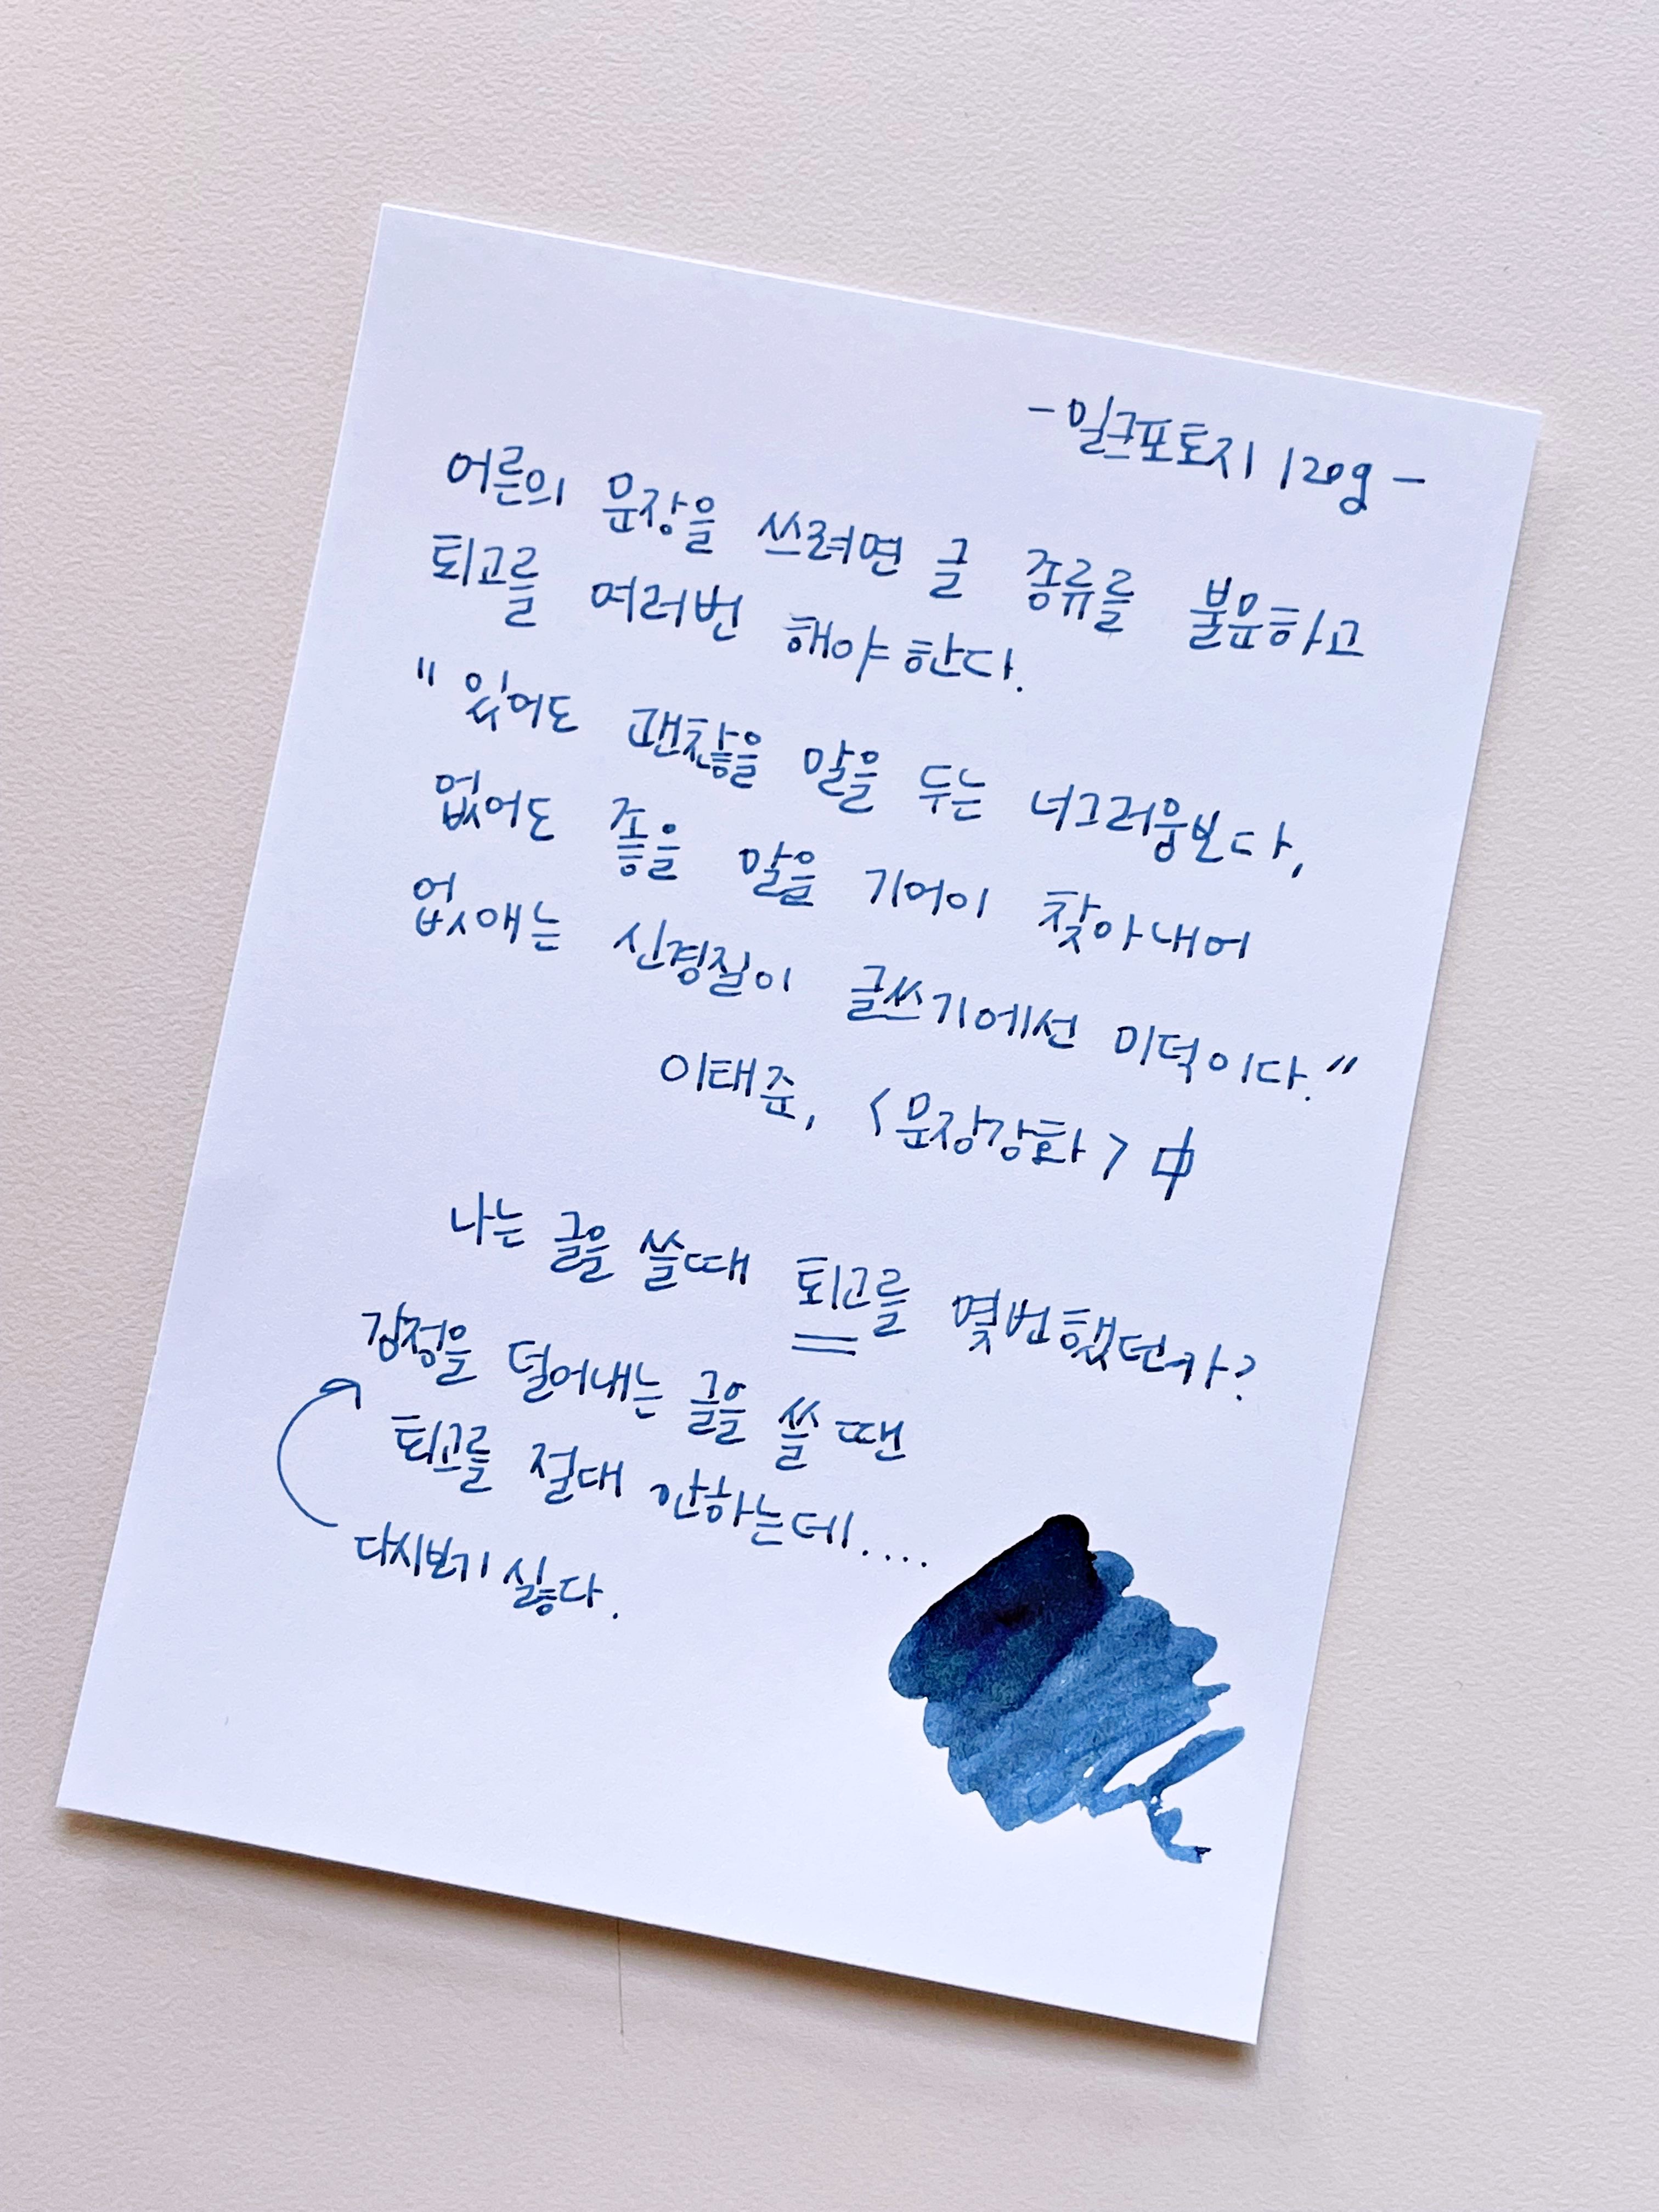 -밀크포토지 120g-
어른의 문장을 쓰려면 글 종류를 불문하고
퇴고를 여러번 해야 한다.
"있어도 괜찮을 말을 두는 너그러움보다,
없어도 좋을 말을 기어이 찾아내어
없애는 신경질이 글쓰기에선 미덕이다."
이태준, <문장강화> 中
나는 글을 쓸때 퇴고를 몇번했던가?
감정을 덜어내는 글을 쓸 땐
퇴고를 절대 안하는데....
다시보기 싫다.